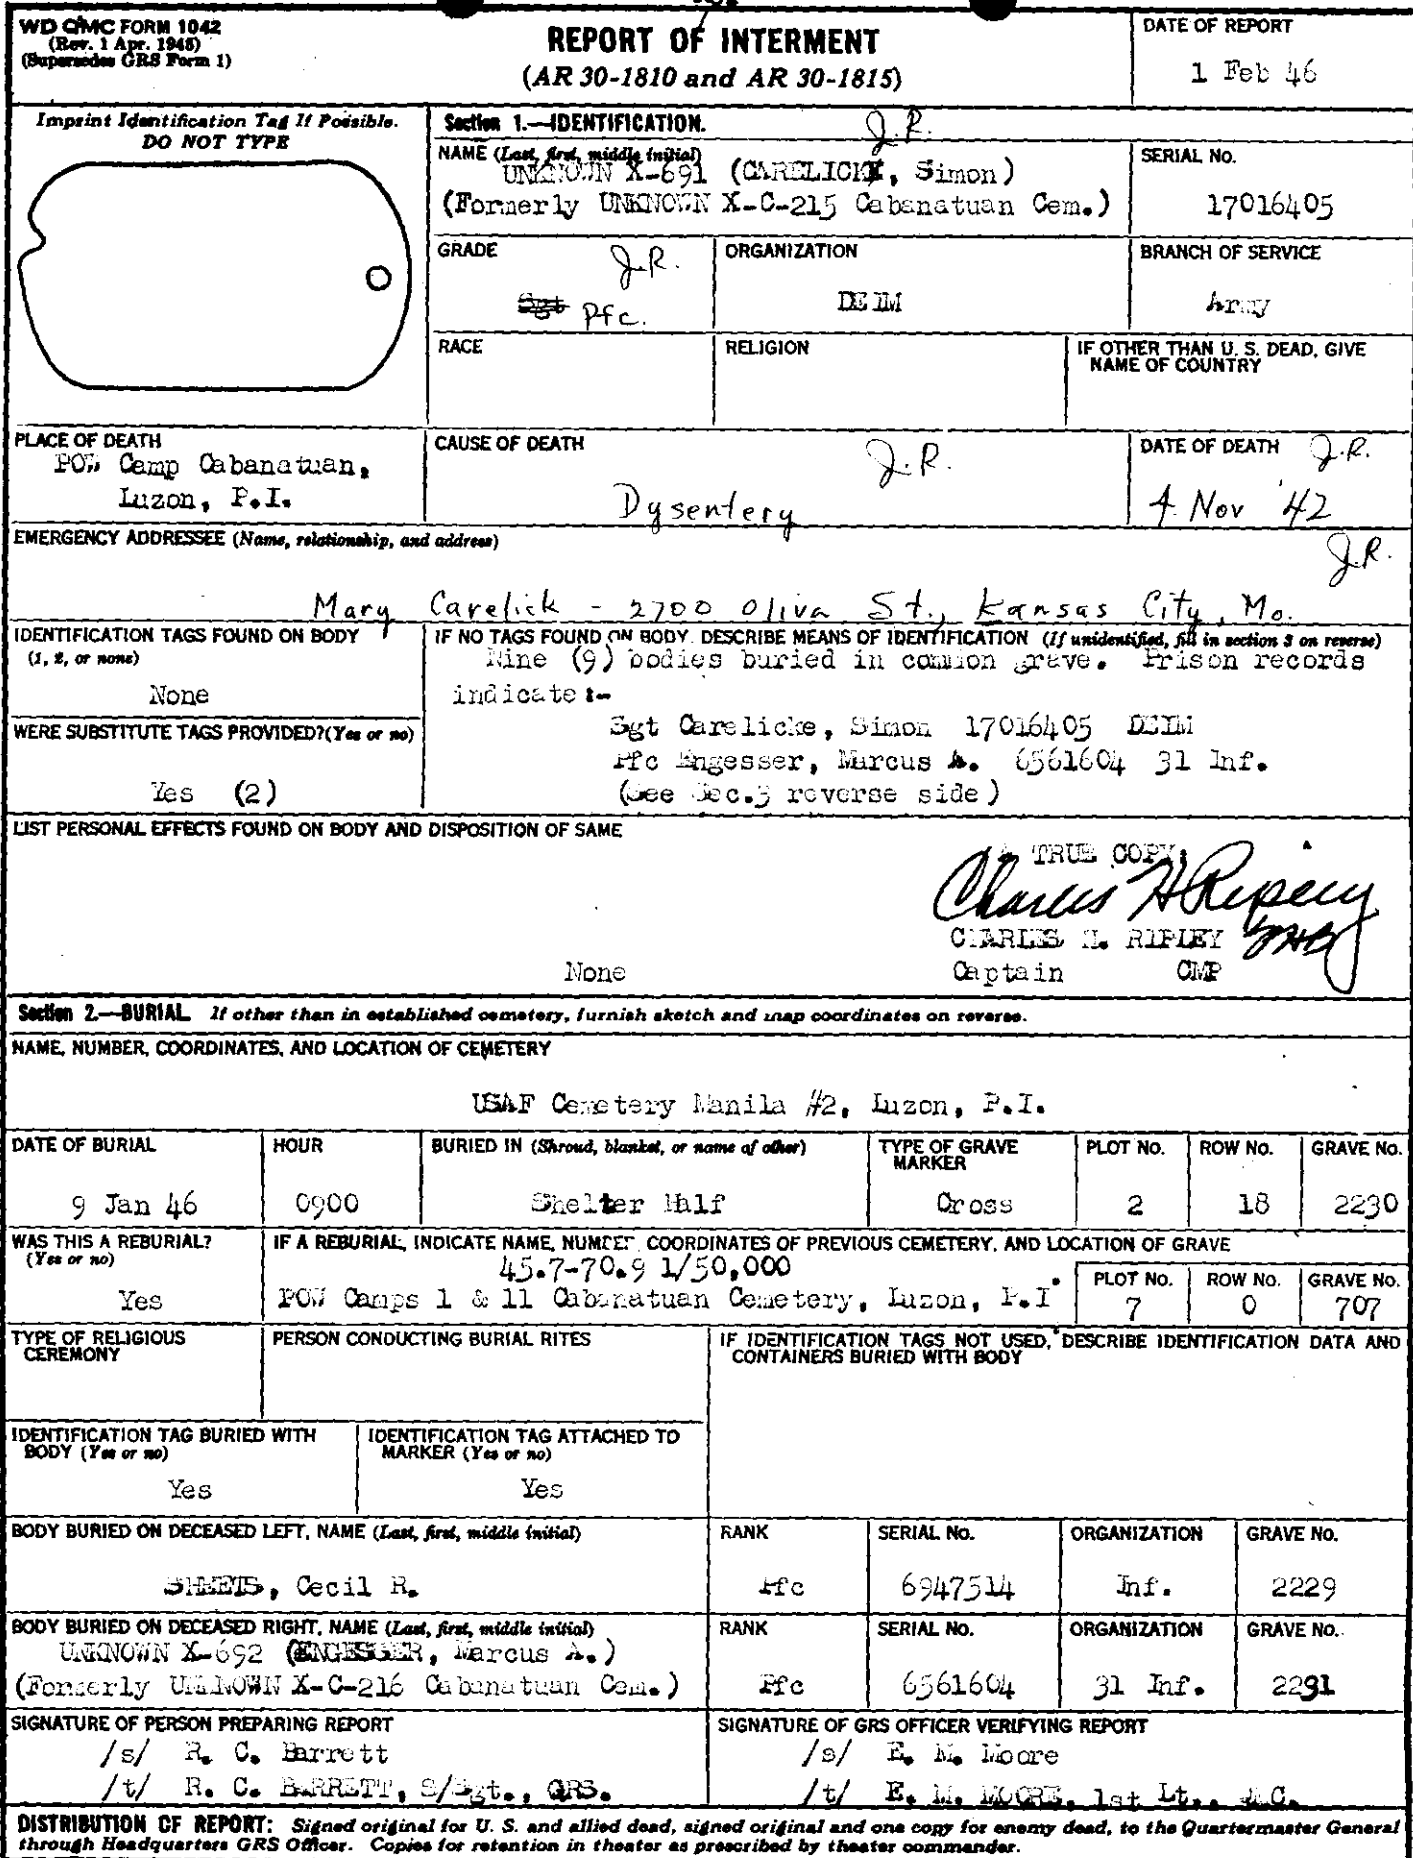 WD QMC FORM 1042
(Rev. 1 Apr. 1945)
(Supersedes GRS Form 1)
REPORT OF INTERMENT
(AR 30-1810 and AR 30-1815)
DATE OF REPORT
1 Feb 46
Imprint Identification Tag If Possible.
DO NOT TYPE
Section 1.—IDENTIFICATION.
J.R.
NAME (Last, first, middle initial)
UNKNOWN X-691 (CARELICK, Simon)
(Formerly UNKNOWN X-C-215 Cabanatuan Cem.)
SERIAL No.
17016405
GRADE
J.R.
Sgt Pfc.
ORGANIZATION
DEIM
BRANCH OF SERVICE
Army
RACE
RELIGION
IF OTHER THAN U. S. DEAD, GIVE
NAME OF COUNTRY
PLACE OF DEATH
POW Camp Cabanatuan,
Luzon, P.I.
CAUSE OF DEATH
J.R.
Dysentery
DATE OF DEATH J.R.
4 Nov '42
EMERGENCY ADDRESSEE (Name, relationship, and address)
J.R.
Mary Carelick - 2700 Oliva St., Kansas City, Mo.
IDENTIFICATION TAGS FOUND ON BODY
(1, 2, or none)
None
IF NO TAGS FOUND ON BODY, DESCRIBE MEANS OF IDENTIFICATION (If unidentified, fill in section 3 on reverse)
Nine (9) bodies buried in common grave. Prison records
indicate:-
Sgt Carelicke, Simon 17016405 DEIM
Pfc Engesser, Marcus A. 6561604 31 Inf.
(See Sec.3 reverse side)
WERE SUBSTITUTE TAGS PROVIDED?(Yes or no)
Yes (2)
LIST PERSONAL EFFECTS FOUND ON BODY AND DISPOSITION OF SAME
A TRUE COPY:
Charles H Ripley
CHARLES H. RIPLEY
Captain CMP
None
Section 2.—BURIAL. If other than in established cemetery, furnish sketch and map coordinates on reverse.
NAME, NUMBER, COORDINATES, AND LOCATION OF CEMETERY
USAF Cemetery Manila #2, Luzon, P.I.
DATE OF BURIAL
9 Jan 46
HOUR
0900
BURIED IN (Shroud, blanket, or name of other)
Shelter Half
TYPE OF GRAVE
MARKER
Cross
PLOT No.
2
ROW No.
18
GRAVE No.
2230
WAS THIS A REBURIAL?
(Yes or no)
Yes
IF A REBURIAL, INDICATE NAME, NUMBER, COORDINATES OF PREVIOUS CEMETERY, AND LOCATION OF GRAVE
45.7-70.9 1/50,000
POW Camps 1 & 11 Cabanatuan Cemetery, Luzon, P.I.
PLOT No.
7
ROW No.
0
GRAVE No.
707
TYPE OF RELIGIOUS
CEREMONY
PERSON CONDUCTING BURIAL RITES
IF IDENTIFICATION TAGS NOT USED, DESCRIBE IDENTIFICATION DATA AND
CONTAINERS BURIED WITH BODY
IDENTIFICATION TAG BURIED WITH
BODY (Yes or no)
Yes
IDENTIFICATION TAG ATTACHED TO
MARKER (Yes or no)
Yes
BODY BURIED ON DECEASED LEFT, NAME (Last, first, middle initial)
SHEETS, Cecil R.
RANK
Pfc
SERIAL No.
6947514
ORGANIZATION
Inf.
GRAVE No.
2229
BODY BURIED ON DECEASED RIGHT, NAME (Last, first, middle initial)
UNKNOWN X-692 (ENGESSER, Marcus A.)
(Formerly UNKNOWN X-C-216 Cabanatuan Cem.)
RANK
Pfc
SERIAL No.
6561604
ORGANIZATION
31 Inf.
GRAVE No.
2231
SIGNATURE OF PERSON PREPARING REPORT
/s/ R. C. Barrett
/t/ R. C. BARRETT, S/Sgt., QRS.
SIGNATURE OF GRS OFFICER VERIFYING REPORT
/s/ E. M. Moore
/t/ E. M. MOORE, 1st Lt.,
DISTRIBUTION OF REPORT: Signed original for U. S. and allied dead, signed original and one copy for enemy dead, to the Quartermaster General
through Headquarters GRS Officer. Copies for retention in theater as prescribed by theater commander.